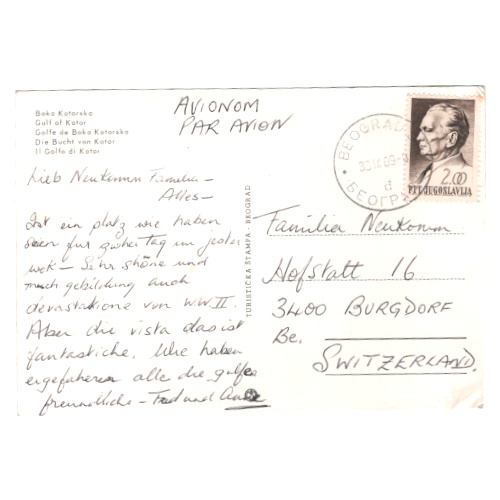 Boka Kotorska
Gulf of Kotor
Golfe de Boka Kotorska
Die Bucht von Kotor
Il Golfo di Kotor
AVIONOM
PAR AVION
BEOGRAD
БЕОГРАД
d
2.00
PTT JUGOSLAVIJA
TURISTIČKA ŠTAMPA - BEOGRAD
Lieb Neukomm Familia -
Alles -
ein platz wie haben
seen fur zwhei tag im jeder
wek - Sehr shöne und
much gebildung auch
devastatione von W.W. II.
Aber die vista das ist
fantastiche. Whe haben
ergefahren alle die golfe
freundliche - Fred und
Familia Neukomm
Hofstatt 16
3400 BURGDORF
Be.
SWITZERLAND.